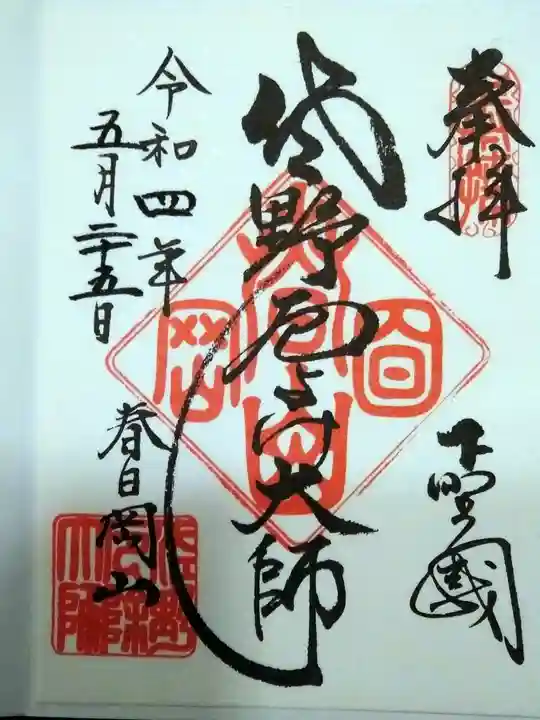 奉拝
下野國
佐野厄よけ大師
令和四年
五月二十五日
春日岡山